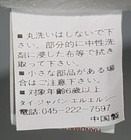 ■丸洗いはしないで下
さい。部分的に中性洗
剤に浸した布等で拭き
取って下さい。
■小さな部品がある場合
はご注意下さい。
■対象年齢6歳以上
タイジャパンエルエルシー
電話:045-222-7597
中国製